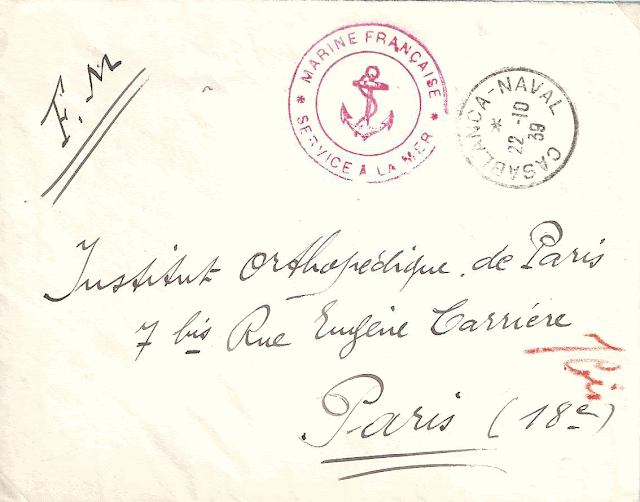 F. M
MARINE FRANÇAISE
* SERVICE À LA MER *
CASABLANCA-NAVAL
*
22 -10
39
Institut Orthopédique de Paris
7 bis Rue Eugène Carrière
Paris (18e)